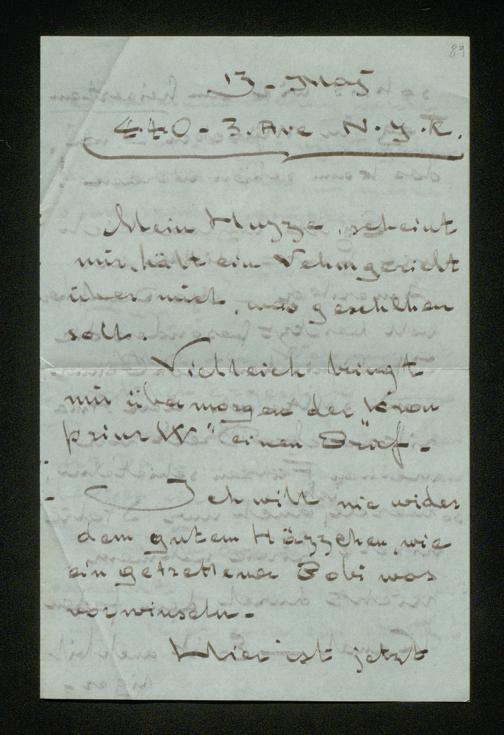 89
13. May
440 - 3. Ave N.Y.K.
Mein Huzze, scheint
mir, hält ein Vehmgericht
über mich, was geschehen
soll.
Vielleich bringt
mir übermorgen der Kron
prinz W" einen Brief.
Ich will nie wider
dem gutem Häzzchen, wie
ein getrettener Bobi was
vorwinseln.
Hier ist jetzt